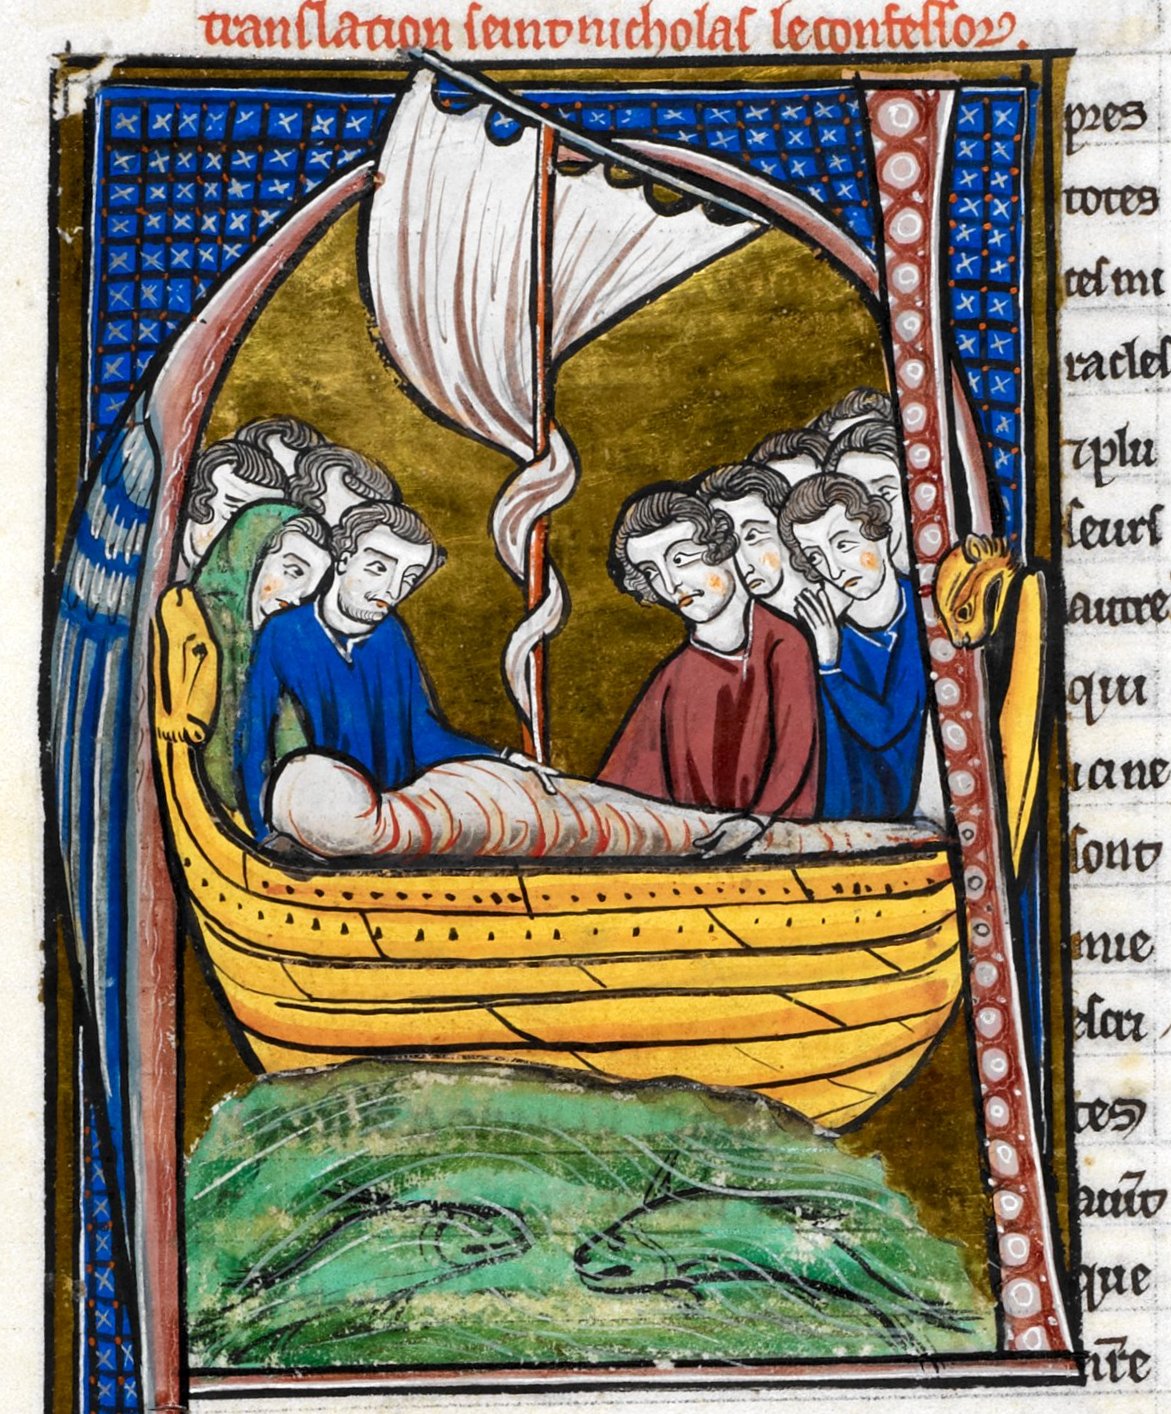 translation seint nicholas le confessor.
pres
totes
ces mi
racles
⁊ plu
seurs
autre
qui
ci ne
sont
mie
escri
tes
auīt
que
nr̄e